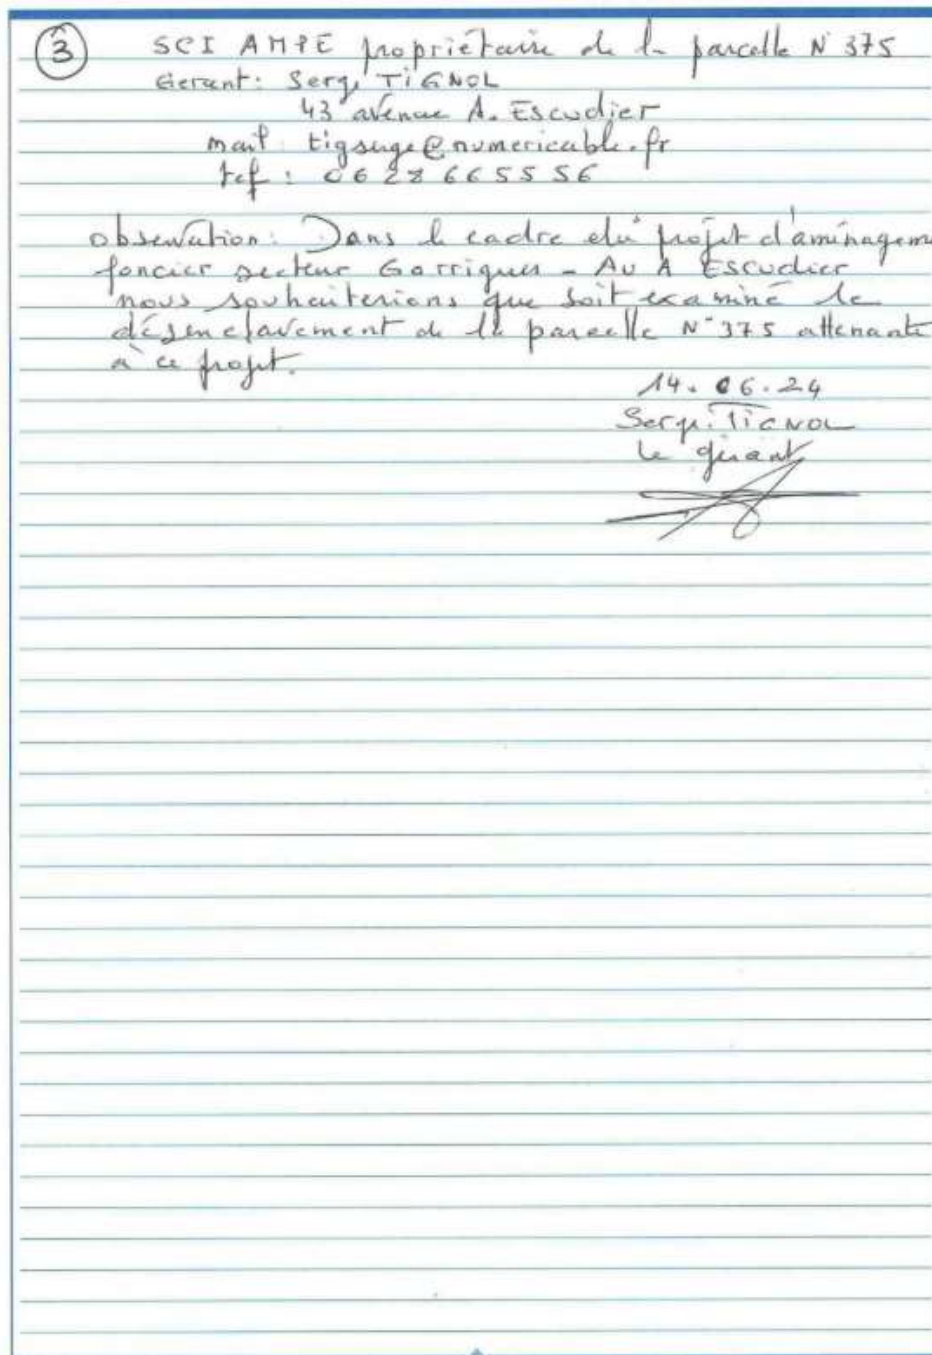 3 SCI AMPE propriétaire de la parcelle N°375
Gerant: Serge TIGNOL
43 avenue A. Escudier
mail : tigserge@numericable.fr
tel : 06 28 66 55 56
observation: Dans le cadre du projet d'aménageme
foncier secteur Garrigues - Av A Escudier
nous souhaiterions que soit examiné le
désenclavement de la parcelle N°375 attenante
à ce projet.
14.06.24
Serge TIGNOL
Le gérant